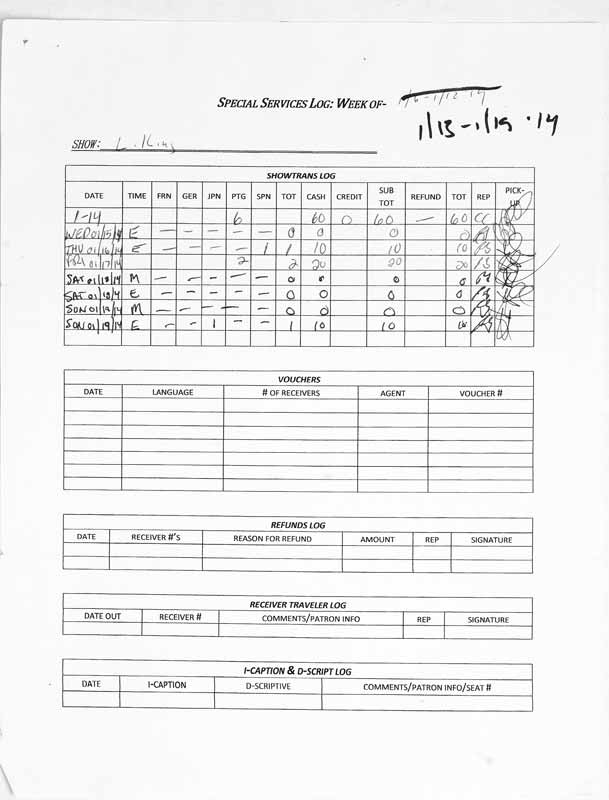 SPECIAL SERVICES LOG: WEEK OF- 1/6-1/12-14
1/13-1/19·14
SHOW: L. King
SHOWTRANS LOG
DATE TIME FRN GER JPN PTG SPN TOT CASH CREDIT SUB TOT REFUND TOT REP PICK-UP
1-14 6 60 0 60 — 60 CC
WED 01/15/14 E — — — — — 0 0 0 0
THU 01/16/14 E — — — — 1 1 10 10 10
FRI 01/17/14 2 2 20 20 20
SAT 01/18/14 M — — — — — 0 0 0 0
SAT 01/18/14 E — — — — — 0 0 0 0
SUN 01/19/14 M — — — — — 0 0 0 0
SUN 01/19/14 E — — 1 — — 1 10 10 10
VOUCHERS
DATE LANGUAGE # OF RECEIVERS AGENT VOUCHER #
REFUNDS LOG
DATE RECEIVER #'S REASON FOR REFUND AMOUNT REP SIGNATURE
RECEIVER TRAVELER LOG
DATE OUT RECEIVER # COMMENTS/PATRON INFO REP SIGNATURE
I-CAPTION & D-SCRIPT LOG
DATE I-CAPTION D-SCRIPTIVE COMMENTS/PATRON INFO/SEAT #